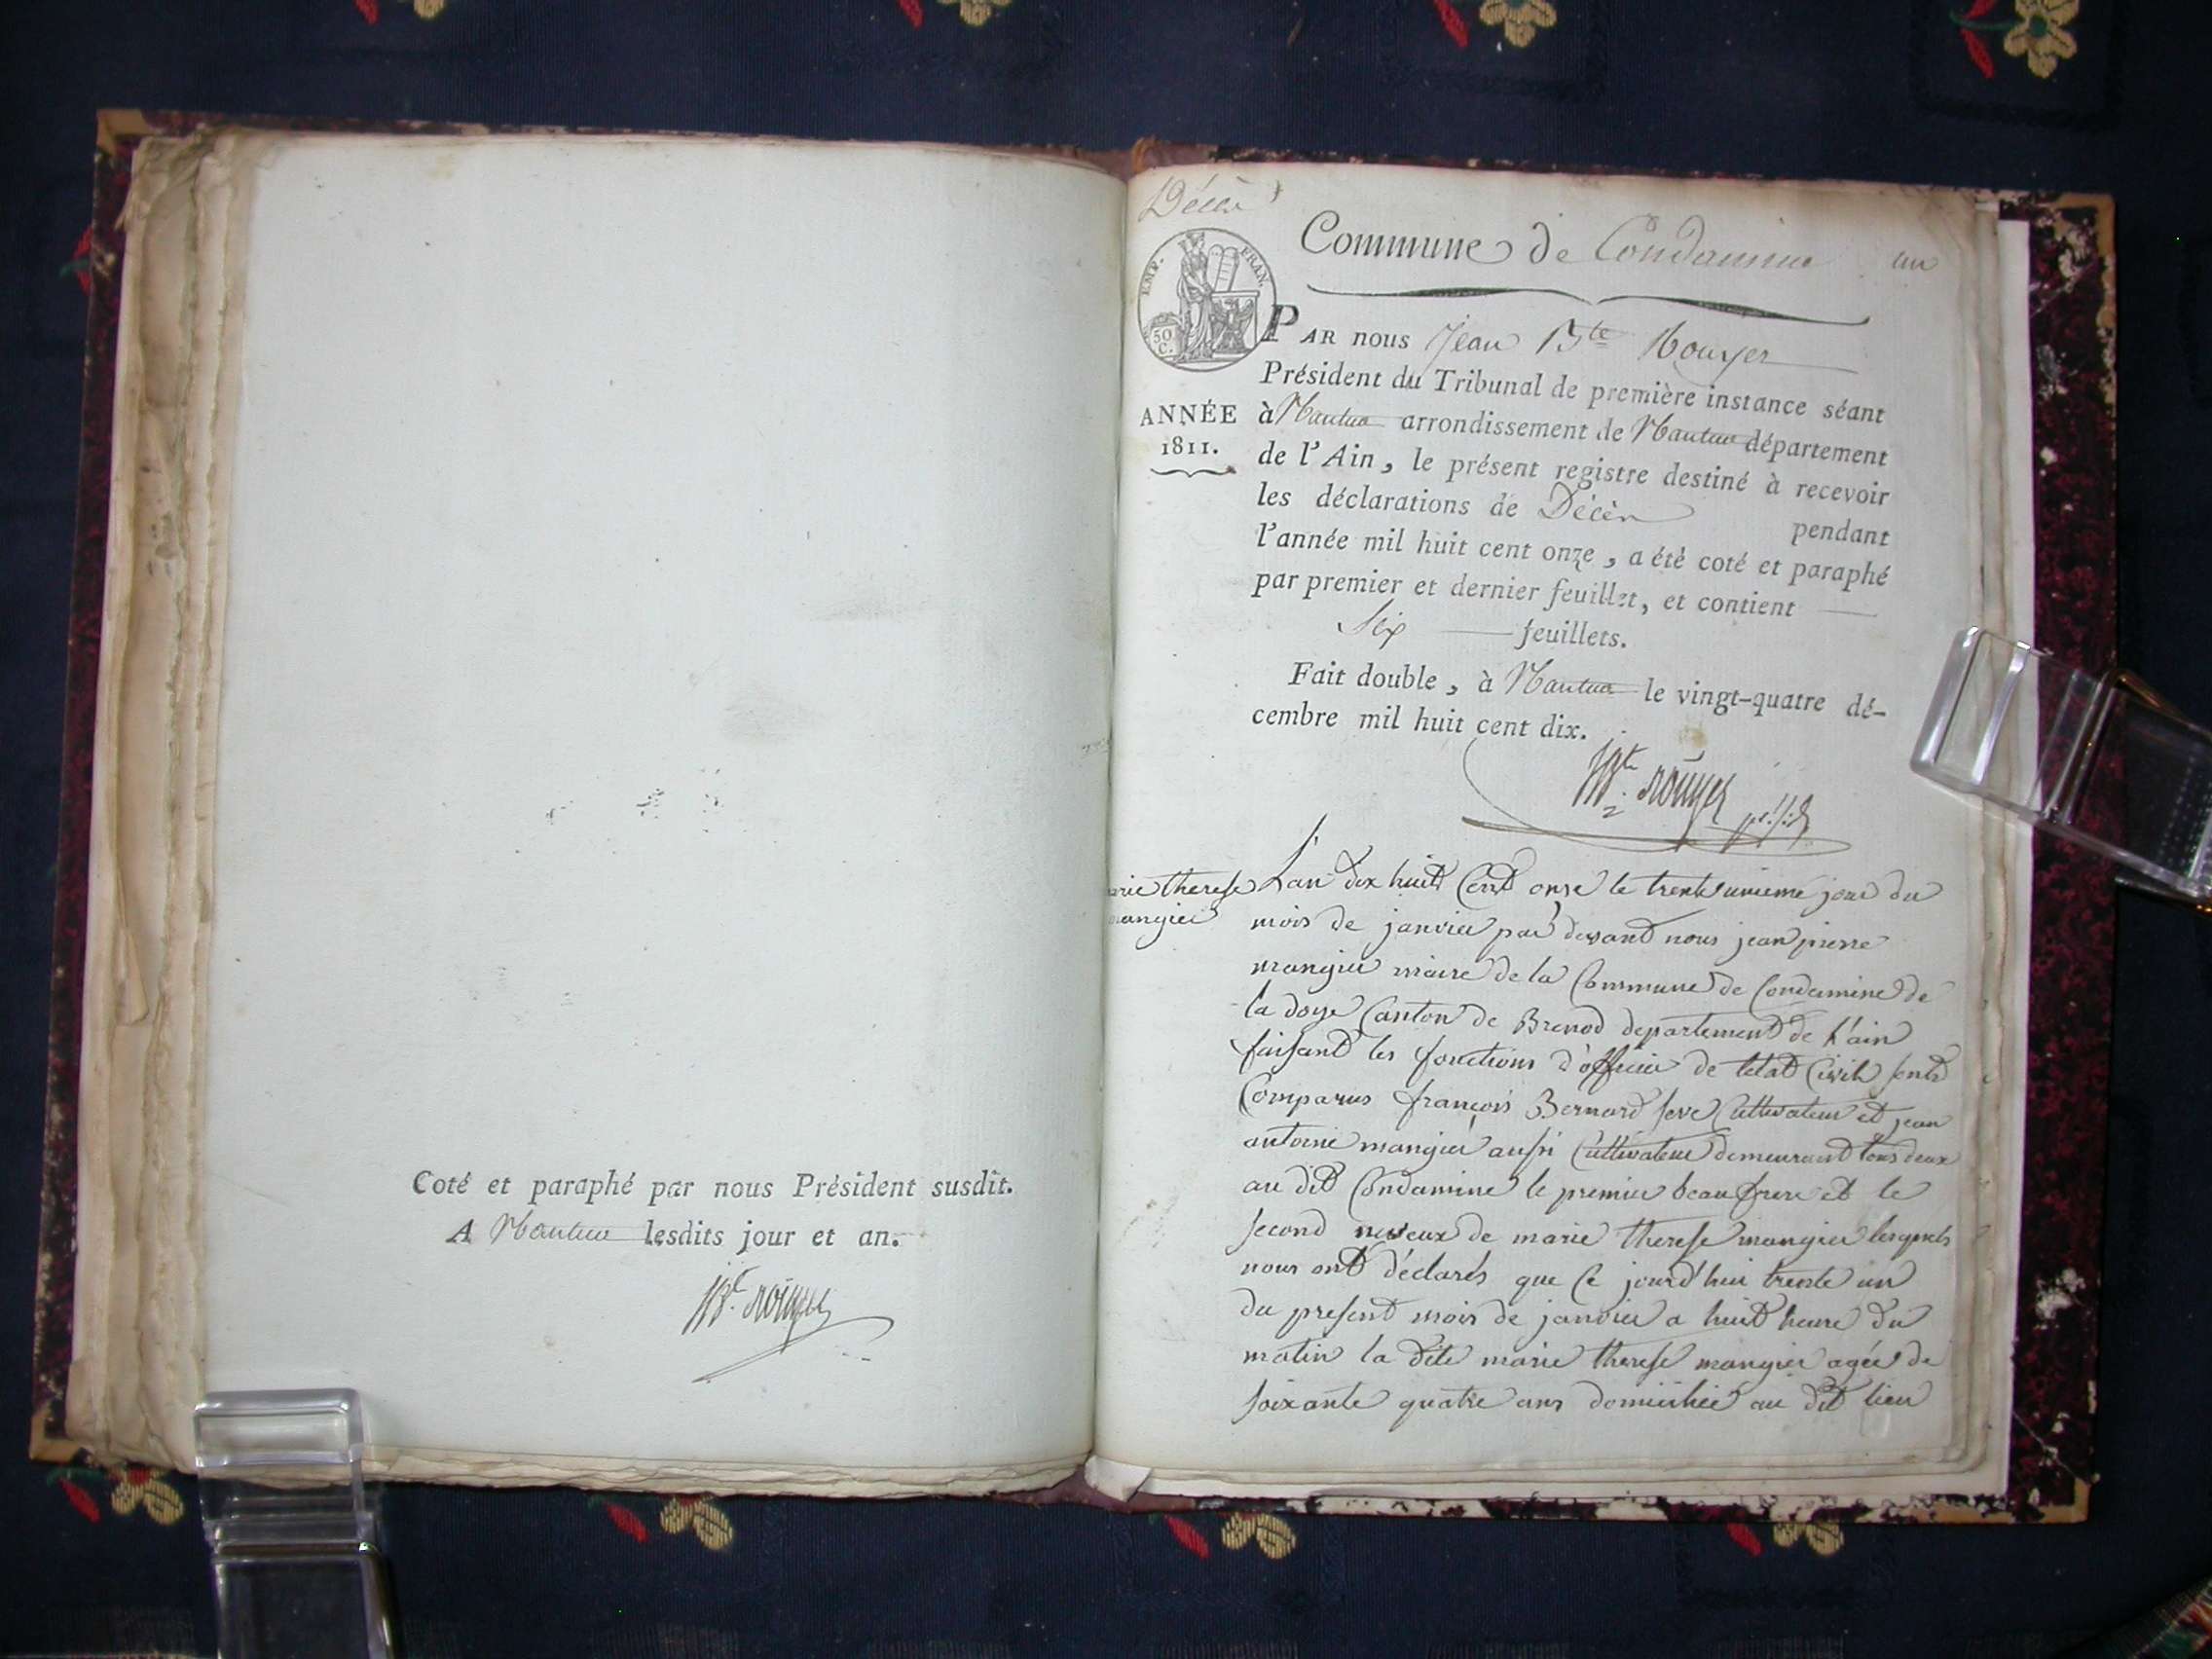 Coté et paraphé par nous Président susdit.
A Nantua lesdits jour et an.
JBte. Rouyer
Décès
Commune de Condamine un
EMP. FRAN.
50
C.
PAR nous Jean Bte Rouyer
Président du Tribunal de première instance séant
ANNÉE
1811.
à Nantua arrondissement de Nantua département
de l'Ain, le présent registre destiné à recevoir
les déclarations de Décès pendant
l'année mil huit cent onze, a été coté et paraphé
par premier et dernier feuillet, et contient
Six feuillets.
Fait double, à Nantua le vingt-quatre dé-
cembre mil huit cent dix.
JBte. Rouyer
arie therese
mangier
L'an dix huit Cent onse le trente unieme jour du
mois de janvier par devant nous jean pierre
mangier maire de la Commune de Condamine de
la doye Canton de Brenod departement de l'ain
faisant les fonctions d'officier de letat Civil sont
Comparus françois Bernard seve Cultivateur et jean
antoine mangier aussi Cultivateur demeurant tous deux
au dit Condamine le premier beau frere et le
second neveux de marie therese mangier lesquels
nous ont déclarés que Ce jourd'hui trente un
du present mois de janvier a huit heure du
matin la dite marie therese mangier agée de
soixante quatre ans domiciliée au dit lieu